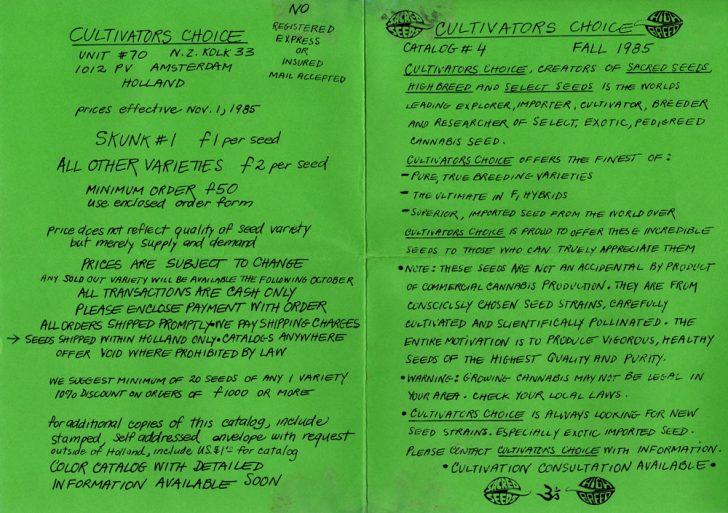 CULTIVATORS CHOICE
UNIT #70 N.Z. KOLK 33
1012 PV AMSTERDAM
HOLLAND
NO
REGISTERED
EXPRESS
OR
INSURED
MAIL ACCEPTED
prices effective Nov. 1, 1985
SKUNK #1 f1 per seed
ALL OTHER VARIETIES f2 per seed
MINIMUM ORDER f50
use enclosed order form
price does not reflect quality of seed variety
but merely supply and demand
PRICES ARE SUBJECT TO CHANGE
ANY SOLD OUT VARIETY WILL BE AVAILABLE THE FOLLOWING OCTOBER
ALL TRANSACTIONS ARE CASH ONLY
PLEASE ENCLOSE PAYMENT WITH ORDER
ALL ORDERS SHIPPED PROMPTLY • WE PAY SHIPPING CHARGES
→ SEEDS SHIPPED WITHIN HOLLAND ONLY • CATALOGS ANYWHERE
OFFER VOID WHERE PROHIBITED BY LAW
WE SUGGEST MINIMUM OF 20 SEEDS OF ANY 1 VARIETY
10% DISCOUNT ON ORDERS OF f1000 OR MORE
for additional copies of this catalog, include
stamped, self addressed envelope with request
outside of Holland, include US.$1.00 for catalog
COLOR CATALOG WITH DETAILED
INFORMATION AVAILABLE SOON
SACRED SEEDS CULTIVATORS CHOICE HIGH BREED
CATALOG # 4 FALL 1985
CULTIVATORS CHOICE, CREATORS OF SACRED SEEDS,
HIGH BREED AND SELECT SEEDS IS THE WORLDS
LEADING EXPLORER, IMPORTER, CULTIVATOR, BREEDER
AND RESEARCHER OF SELECT, EXOTIC, PEDIGREED
CANNABIS SEED.
CULTIVATORS CHOICE OFFERS THE FINEST OF:
- PURE, TRUE BREEDING VARIETIES
- THE ULTIMATE IN F1 HYBRIDS
- SUPERIOR, IMPORTED SEED FROM THE WORLD OVER
CULTIVATORS CHOICE IS PROUD TO OFFER THESE INCREDIBLE
SEEDS TO THOSE WHO CAN TRUELY APPRECIATE THEM
• NOTE: THESE SEEDS ARE NOT AN ACCIDENTAL BY PRODUCT
OF COMMERCIAL CANNABIS PRODUTION. THEY ARE FROM
CONSCIOLSLY CHOSEN SEED STRAINS, CAREFULLY
CULTIVATED AND SCIENTIFICALLY POLLINATED. THE
ENTIRE MOTIVATION IS TO PRODUCE VIGOROUS, HEALTHY
SEEDS OF THE HIGHEST QUALITY AND PURITY.
• WARNING: GROWING CANNABIS MAY NOT BE LEGAL IN
YOUR AREA. CHECK YOUR LOCAL LAWS.
• CULTIVATORS CHOICE IS ALWAYS LOOKING FOR NEW
SEED STRAINS. ESPECIALLY EXOTIC IMPORTED SEED.
PLEASE CONTACT CULTIVATORS CHOICE WITH INFORMATION.
• CULTIVATION CONSULTATION AVAILABLE •
SACRED SEEDS ॐ HIGH BREED